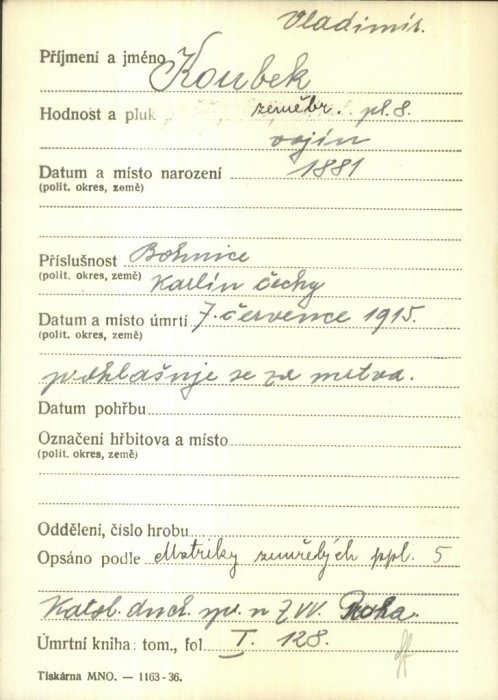 Vladimír.
Příjmení a jméno Koubek
Hodnost a pluk zeměbr. pl. 8.
vojín
Datum a místo narození 1881
(polit. okres, země)
Příslušnost Bohnice
(polit. okres, země) Karlín Čechy
Datum a místo úmrtí 7. července 1915.
(polit. okres, země)
prohlašuje se za mrtva.
Datum pohřbu
Označení hřbitova a místo
(polit. okres, země)
Oddělení, číslo hrobu
Opsáno podle Matriky zemřelých ppl. 5
Katol. duch. spr. n ZVV. Praha.
Úmrtní kniha: tom., fol. I. 128.
Tiskárna MNO. — 1163-36.